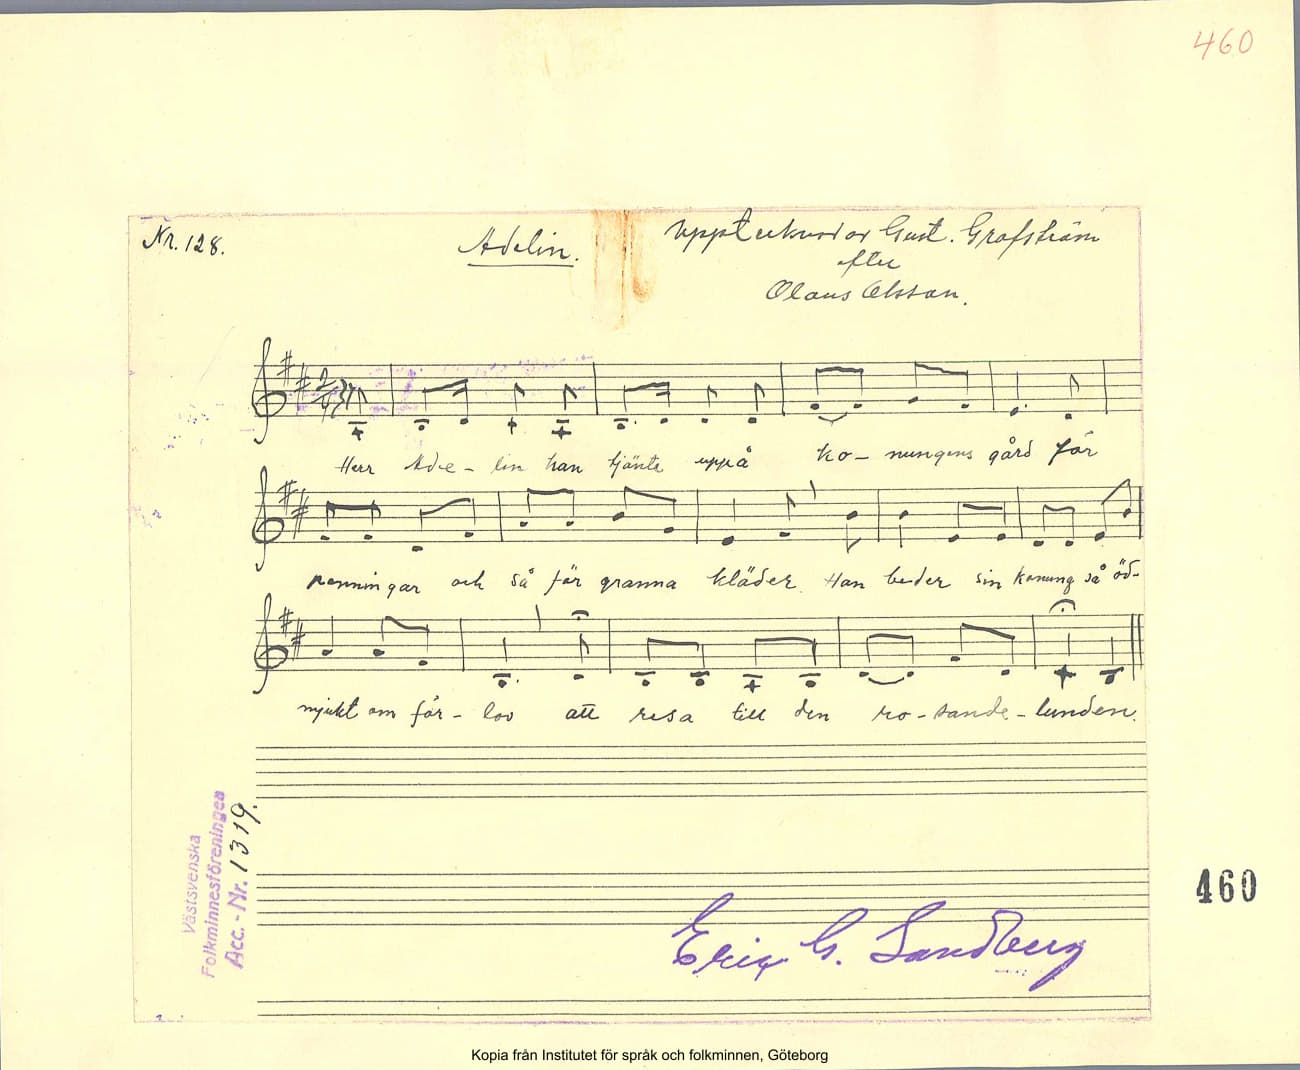 460
Nr. 128.
Adelin.
Upptecknad av Gust. Grafström
efter
Olaus Olsson.
2/4 3/4
Herr Ade - lin han tjänte uppå ko - nungens gård för
penningar och så för granna kläder. Han beder sin konung så öd-
mjukt om för - lov att resa till den ro - sande - lunden.
Västsvenska
Folkminnesföreningen
Acc. - Nr. 1319.
460
Eric G. Sandberg
Kopia från Institutet för språk och folkminnen, Göteborg